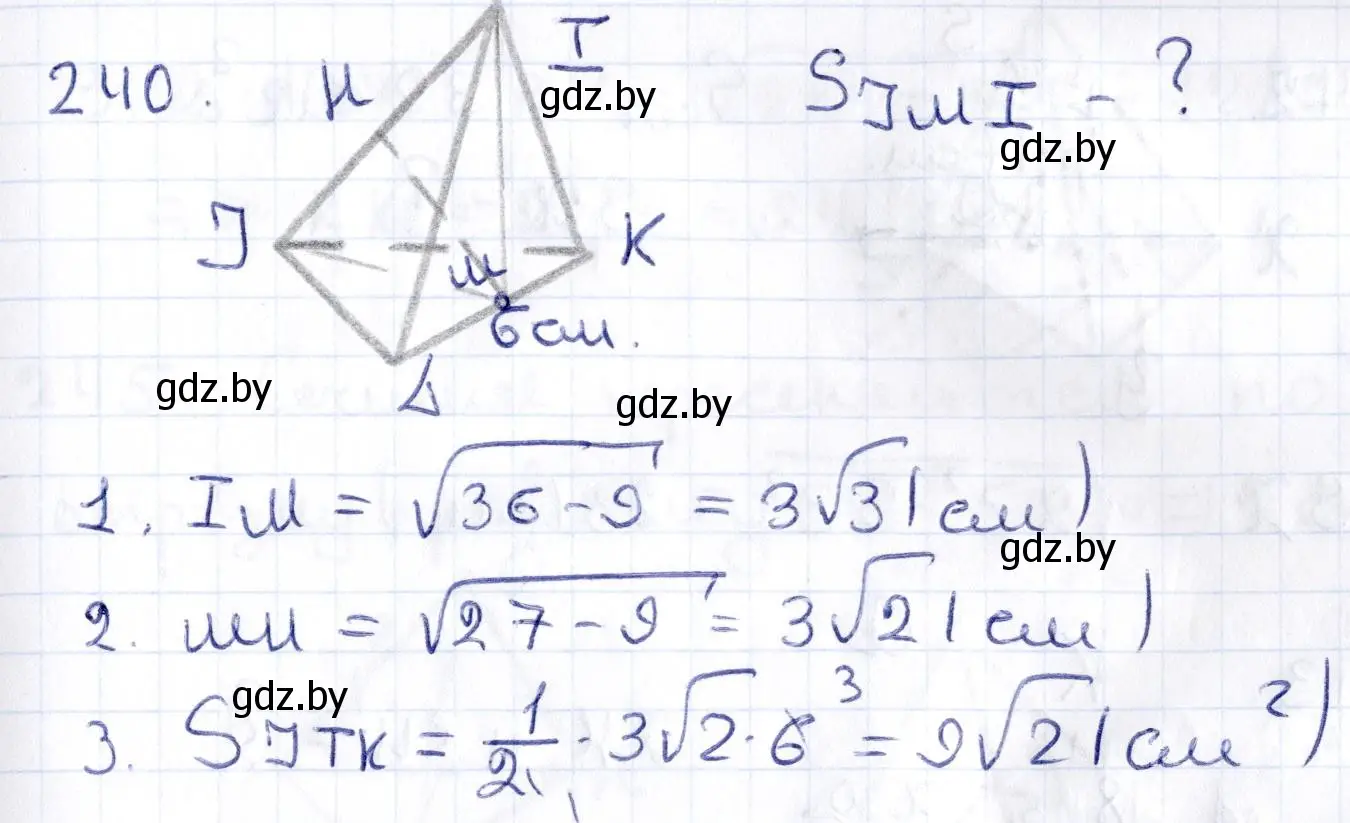 240. H I S_JMI - ?
gdz.by
gdz.by
J K
M
6 см.
gdz.by
Δ
gdz.by
1. IM = √36-9 = 3√3 (см)
gdz.by
2. MH = √27-9 = 3√2 (см)
gdz.by
3. S_JTK = 1/2 · 3√2 · 6 ³ = 9√2 (см²)